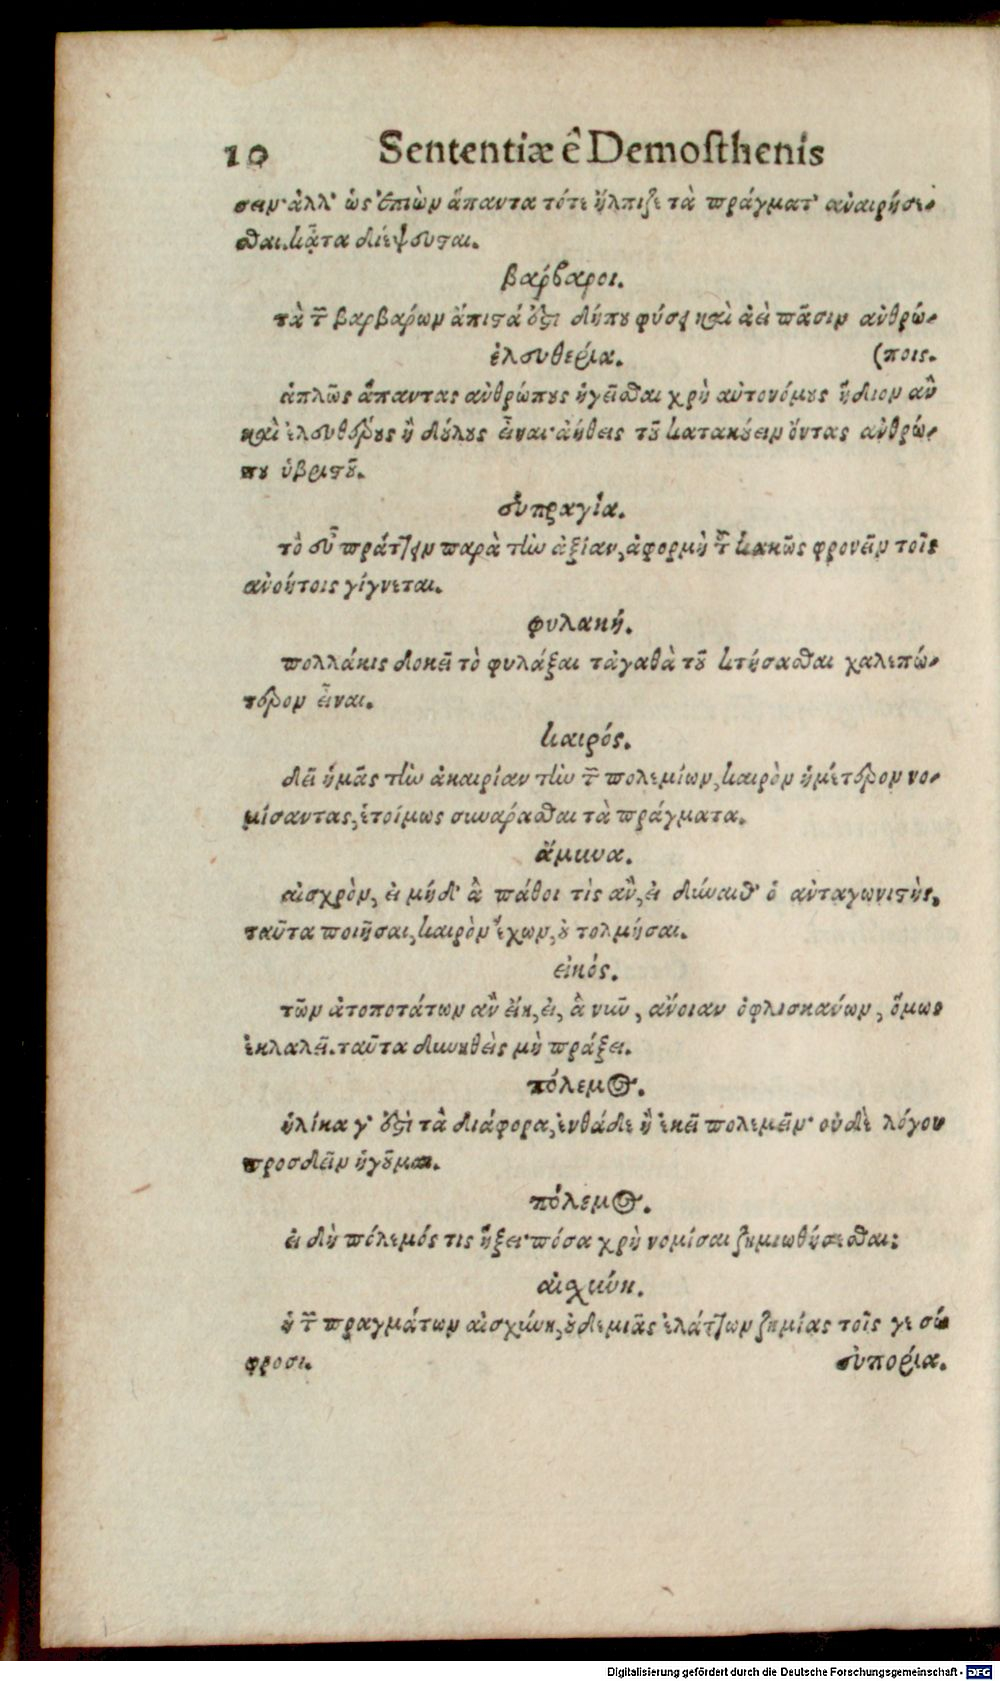 10 Sententiæ ê Demosthenis
σειν· ἀλλ' ὡς ἐπιὼν ἅπαντα τότε ἤλπιζε τὰ πράγματ' ἀναιρήσε-
σθαι. κᾆτα διέψευσται.
βαρβαροι.
τὰ τῶν βαρβαρων ἄπιστά ἐστι δήπου φύσει καὶ ἀεὶ πᾶσιν ἀνθρώ-
ἐλευθερία. (ποις.
ἁπλῶς ἅπαντας ἀνθρώπους ἡγεῖσθαι χρὴ αὐτονόμους ἥδιον ἂν
καὶ ἐλευθέρους ἢ δούλους εἶναι· ἀήθεις τοῦ κατακούειν ὄντας ἀνθρώ-
που ὑβριστοῦ.
εὐπραγία.
τὸ εὖ πράττειν παρὰ τὴν ἀξίαν, ἀφορμὴ τοῦ κακῶς φρονεῖν τοῖς
ἀνοήτοις γίγνεται.
φυλακή.
πολλάκις δοκεῖ τὸ φυλάξαι τἀγαθὰ τοῦ κτήσασθαι χαλεπώ-
τερον εἶναι.
καιρός.
δεῖ ἡμᾶς τὴν ἀκαιρίαν τὴν τῶν πολεμίων, καιρὸν ἡμέτερον νο-
μίσαντας, ἑτοίμως συναρασθαι τὰ πράγματα.
ἄμυνα.
αἰσχρὸν, εἰ μήδ' ἃ πάθοι τὶς ἂν, εἰ δύναιθ' ὁ ἀνταγωνιστὴς,
ταῦτα ποιῆσαι, καιρὸν ἔχων, οὐ τολμήσαι.
εἰκός.
τῶν ἀτοποτάτων ἂν εἴη, εἰ, ἃ νῦν, ἄνοιαν ὀφλισκανων, ὅμως
ἐκλαλεῖ. ταῦτα δυνηθεὶς μὴ πράξει.
πόλεμος.
ἡλίκα γ' ἐστὶ τὰ διάφορα, ἐνθάδε ἢ ἐκεῖ πολεμεῖν· οὐδὲ λόγου
προσδεῖν ἡγοῦμαι.
πόλεμος.
εἰ δὴ πόλεμός τις ἥξει· πόσα χρὴ νομίσαι ζημιωθήσεσθαι;
αἰσχύνη.
ἡ τῶν πραγμάτων αἰσχύνη, οὐδεμιᾶς ἐλάττων ζημίας τοῖς γε σώ
φροσι. εὐπορία.
Digitalisierung gefördert durch die Deutsche Forschungsgemeinschaft - DFG